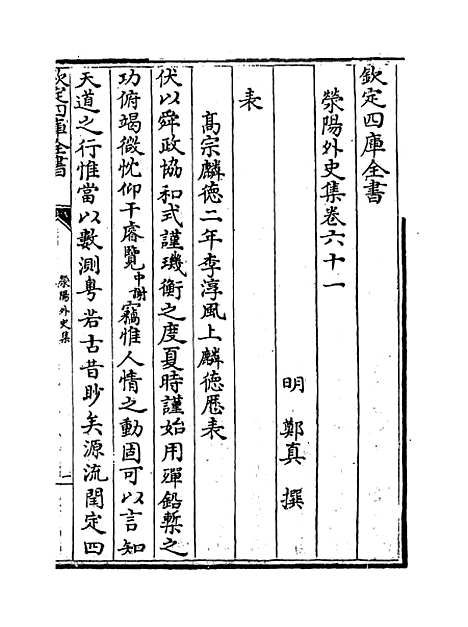 欽定四庫全書
滎陽外史集卷六十一
明 鄭真 撰
表
髙宗麟德二年李淳風上麟德厯表
伏以舜政協和式謹璣衡之度夏時謹始用殫鉛槧之
功俯竭微忱仰干睿覽中謝竊惟人情之動固可以言知
天道之行惟當以數測粤若古昔眇矣源流閏定四
欽定四庫全書
滎陽外史集
一